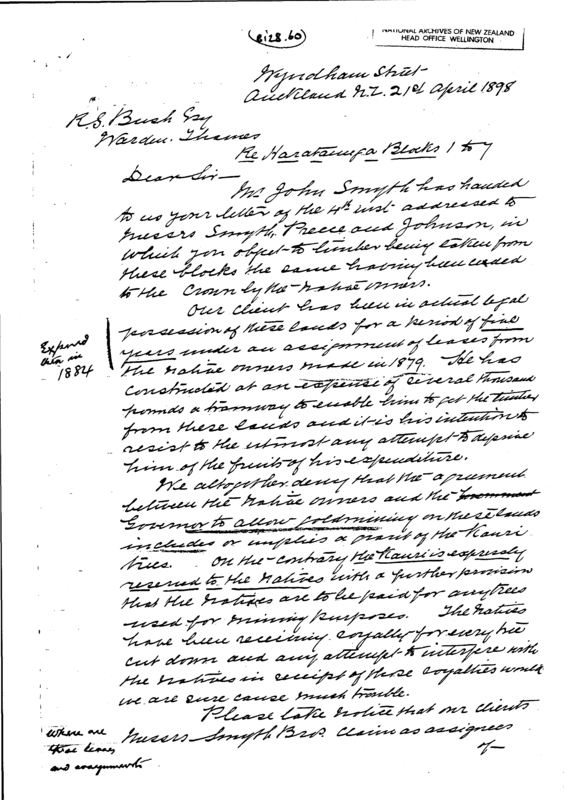 e128.60
NATIONAL ARCHIVES OF NEW ZEALAND
HEAD OFFICE WELLINGTON
Wyndham Street
Auckland N.Z. 21st April 1898
R.S. Bush Esq
Warden. Thames
Re Harataunga Blocks 1 to 7
Dear Sir—
Mr John Smyth has handed
to us your letter of the 4th inst addressed to
Messrs Smyth, Preece and Johnson, in
which you object to timber being taken from
these blocks the same having been ceded
to the Crown by the Native owners.
Our client has been in actual legal
possession of these lands for a period of five
years under an assignment of leases from
the Native owners made in 1879. He has
constructed at an expense of several thousand
pounds a tramway to enable him to get the timber
from these lands and it is his intention to
resist to the utmost any attempt to deprive
him of the fruits of his expenditure.
We altogether deny that the agreement
between the Native owners and the Government
Governor to allow goldmining on these lands
includes or implies a grant of the Kauri
trees. On the contrary the Kauri is expressly
reserved to the Natives with a further provision
that the Natives are to be paid for any trees
used for mining purposes. The Natives
have been receiving royalty for every tree
cut down and any attempt to interfere with
the Natives in receipt of those royalties would
we are sure cause much trouble.
Please take notice that our clients
Messrs Smyth Bros. claim as assignees
of—
Expired
in
1884
Where are
these leases
and assignments